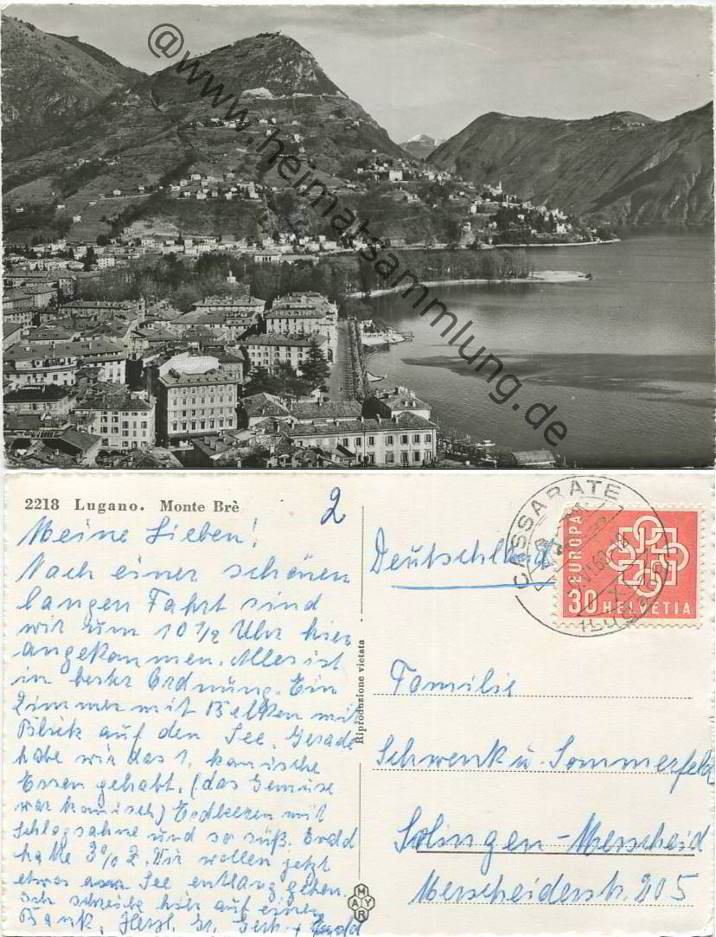 @www.heimatsammlung.de
2218 Lugano. Monte Brè
2
Meine Lieben!
Nach einer schönen
langen Fahrt sind
wir um 10 1/2 Uhr hier
angekommen. Alles ist
in bester Ordnung. Ein
Zimmer mit Balkon mit
Blick auf den See. Gerade
habe wir das 1.
Essen gehabt. (das Gemüse
war komisch) Erdbeeren mit
Schlagsahne und so süß.
hatte 3 1/2 Z. Wir wollen jetzt
etwas am See entlang gehen.
Ich schreibe hier auf einer
Bank. Herzl. Gr.
Riproduzione vietata
MAYR
Deutschland
CASSARATE
EUROPA
30 HELVETIA
Familie
Schwenk u. Sommerfeld
Solingen-Merscheid
Merscheiderstr. 205